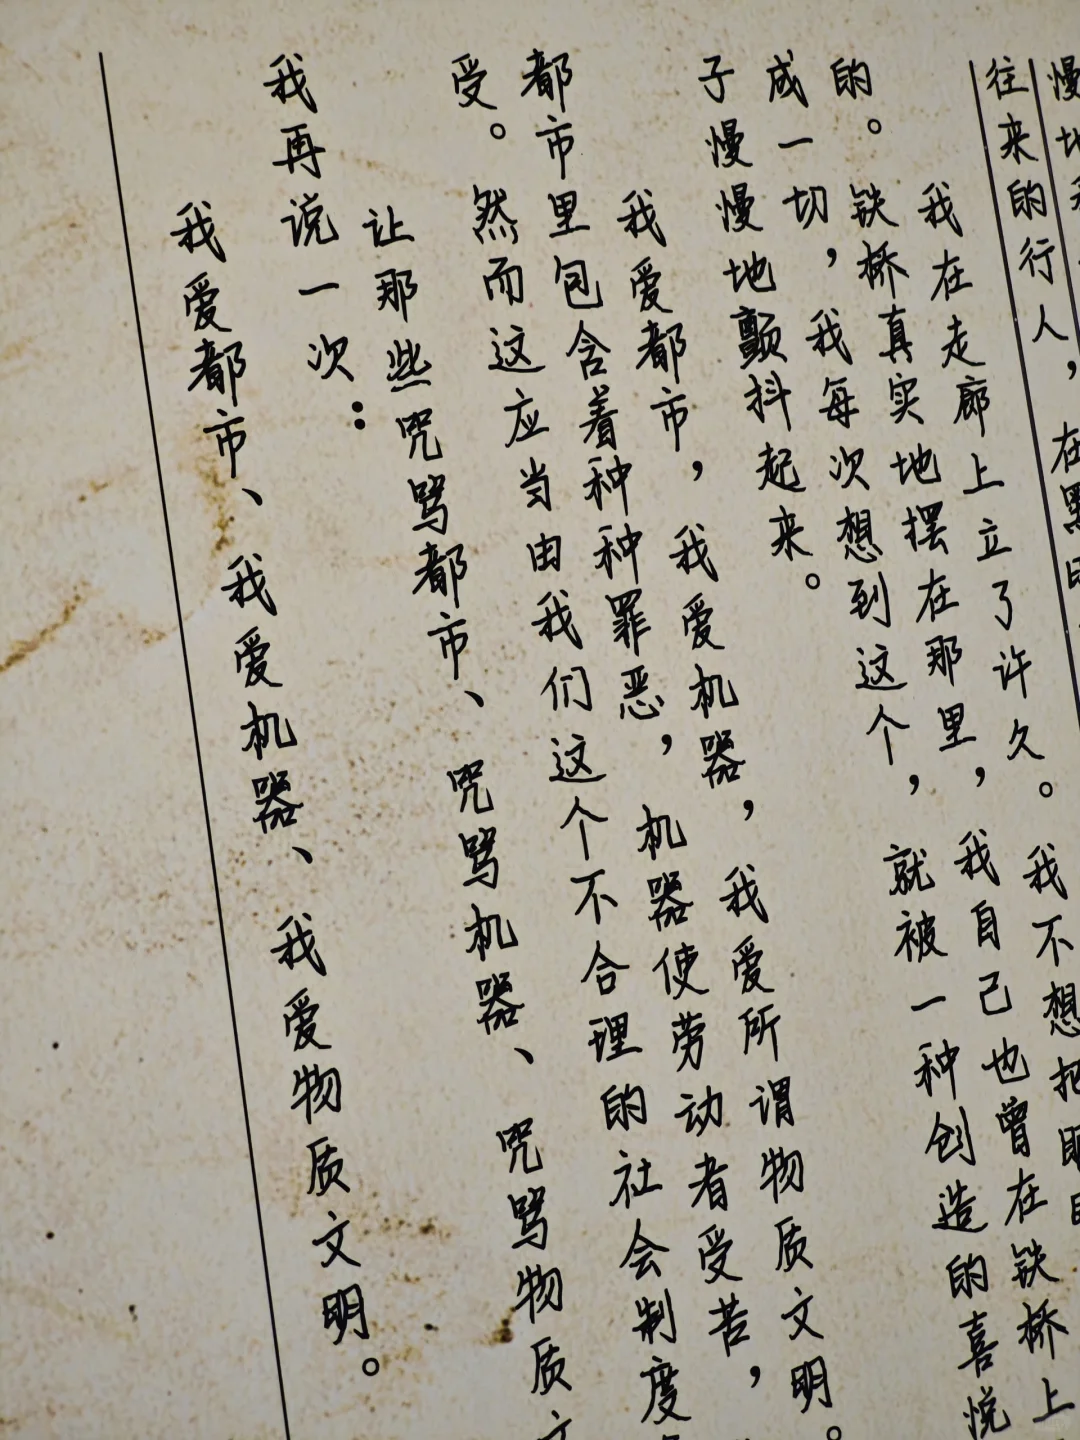 慢地
往来的行人，在黑
我在走廊上立了许久。我不想把
的。铁桥真实地摆在那里，我自己也曾在铁桥上
成一切，我每次想到这个，就被一种创造的喜悦
子慢慢地颤抖起来。
我爱都市，我爱机器，我爱所谓物质文明。
都市里包含着种种罪恶，机器使劳动者受苦，
受。然而这应当由我们这个不合理的社会制度
让那些咒骂都市、咒骂机器、咒骂物质文
我再说一次：
我爱都市、我爱机器、我爱物质文明。